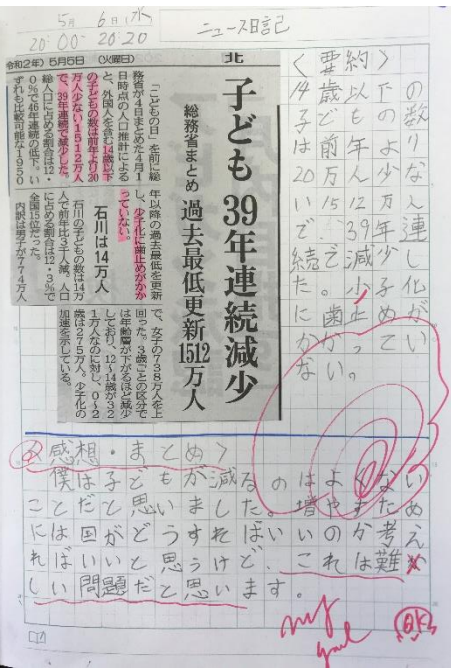 5月 6日(水
20:00-20:20
ニュース日記
令和2年) 5月5日 (火曜日)
北
子ども 39年連続減少
総務省まとめ 過去最低更新1512万人
「こどもの日」を前に総
務省が4日まとめた4月1
日時点の人口推計による
と、外国人を含む14歳以下
の子どもの数は前年より20
万人少ない1512万人
で、39年連続で減少した。
総人口に占める割合は12・
0%で46年連続の低下。い
ずれも比較可能な1950
年以降の過去最低を更新
し、少子化に歯止めがかか
っていない。
石川は14万人
石川の子どもの数は14万
人で前年比3千人減。人口
に占める割合は12・3%で
全国15位だった。
内訳は男子が774万人
で、女子の738万人を上
回った。3歳ごとの区分で
は年齢層が下がるほど減少
しており、12~14歳が32
1万人なのに対し、0~2
歳は275万人。少子化の
加速を示している。
<要約>
14歳以下の
子どもの数
は前年より
20万人少な
い1512万人
で、39年連
続で減少し
た。少子化
に歯止めが
かかってい
ない。
<感想・まとめ>
僕は子どもが減るのはよくない
ことだと思いました。増やすため
には国がどうすればいいのか考え
ればいいと思うけど、これは難
しい問題だと思います。
OK